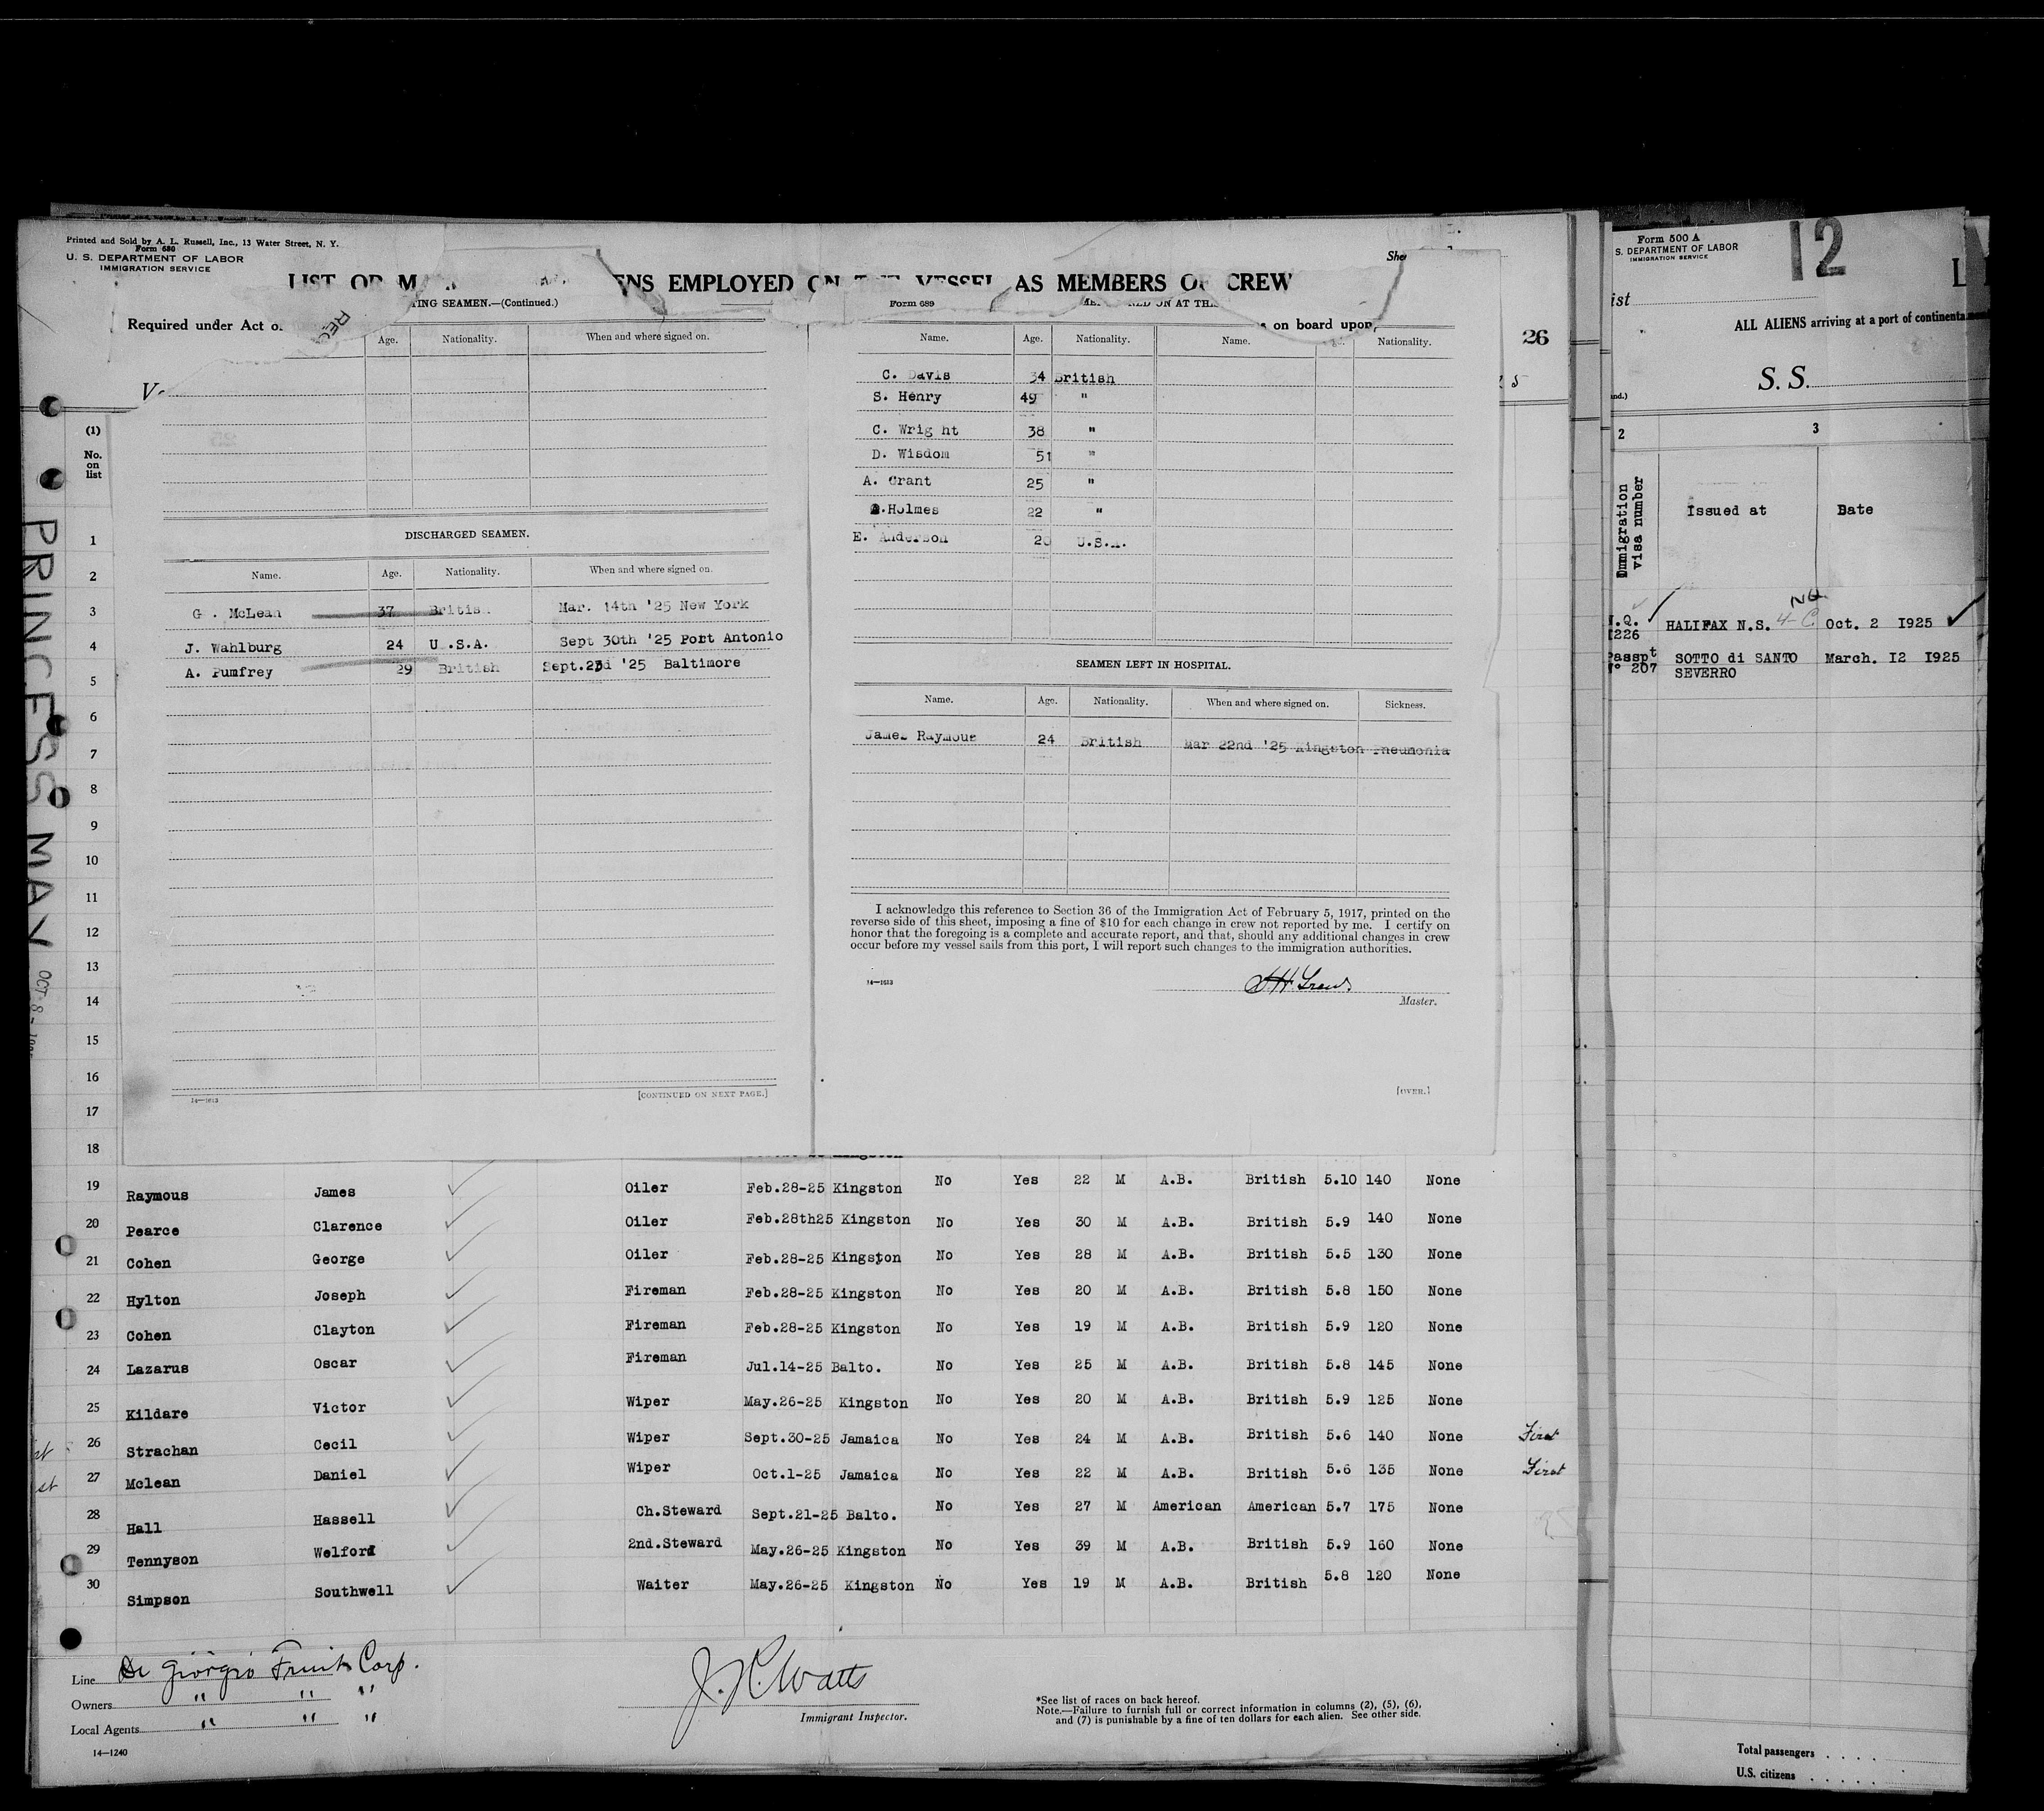 Printed and Sold by A. L. Russell, Inc., 13 Water Street, N. Y.
Form 680
U. S. DEPARTMENT OF LABOR
IMMIGRATION SERVICE
LIST OR MA ENS EMPLOYED ON THE VESSEL AS MEMBERS OF CREW
Required under Act o
on board upon
She
26
V
(1)
No.
on
list
PRINCESS MAY OCT 8 -
REC
TING SEAMEN.—(Continued.)
Age. Nationality. When and where signed on.
DISCHARGED SEAMEN.
Name. Age. Nationality. When and where signed on.
G . McLean 37 Britis Mar. 14th '25 New York
J. Wahlburg 24 U .S.A. Sept 30th '25 Port Antonio
A. Pumfrey 29 British Sept.23d '25 Baltimore
14—1613
[CONTINUED ON NEXT PAGE.]
Form 689
ED ON AT THIS
Name. Age. Nationality. Name. Nationality.
C. Davis 34 British
S. Henry 49 "
C. Wrig ht 38 "
D. Wisdom 51 "
A. Grant 25 "
.Holmes 22 "
E. Anderson 20 U.S.A.
SEAMEN LEFT IN HOSPITAL.
Name. Age. Nationality. When and where signed on. Sickness.
James Raymous 24 British Mar 22nd '25 Kingston Pneumonia
I acknowledge this reference to Section 36 of the Immigration Act of February 5, 1917, printed on the
reverse side of this sheet, imposing a fine of $10 for each change in crew not reported by me. I certify on
honor that the foregoing is a complete and accurate report, and that, should any additional changes in crew
occur before my vessel sails from this port, I will report such changes to the immigration authorities.
14—1613
Master.
[OVER.]
1
2
3
4
5
6
7
8
9
10
11
12
13
14
15
16
17
18
19 Raymous James Oiler Feb.28-25 Kingston No Yes 22 M A.B. British 5.10 140 None
20 Pearce Clarence Oiler Feb.28th25 Kingston No Yes 30 M A.B. British 5.9 140 None
21 Cohen George Oiler Feb.28-25 Kingston No Yes 28 M A.B. British 5.5 130 None
22 Hylton Joseph Fireman Feb.28-25 Kingston No Yes 20 M A.B. British 5.8 150 None
23 Cohen Clayton Fireman Feb.28-25 Kingston No Yes 19 M A.B. British 5.9 120 None
24 Lazarus Oscar Fireman Jul.14-25 Balto. No Yes 25 M A.B. British 5.8 145 None
25 Kildare Victor Wiper May.26-25 Kingston No Yes 20 M A.B. British 5.9 125 None
26 Strachan Cecil Wiper Sept.30-25 Jamaica No Yes 24 M A.B. British 5.6 140 None First
27 Mclean Daniel Wiper Oct.1-25 Jamaica No Yes 22 M A.B. British 5.6 135 None First
28 Hall Hassell Ch.Steward Sept.21-25 Balto. No Yes 27 M American American 5.7 175 None
29 Tennyson Welford 2nd.Steward May.26-25 Kingston No Yes 39 M A.B. British 5.9 160 None
30 Simpson Southwell Waiter May.26-25 Kingston No Yes 19 M A.B. British 5.8 120 None
Line De Giorgio Fruit Corp.
Owners " " "
Local Agents " " "
14—1240
J. R. Watts
Immigrant Inspector.
*See list of races on back hereof.
Note.—Failure to furnish full or correct information in columns (2), (5), (6),
and (7) is punishable by a fine of ten dollars for each alien. See other side.
Form 500 A
S. DEPARTMENT OF LABOR
IMMIGRATION SERVICE
12
ist
ALL ALIENS arriving at a port of continenta
S. S.
2 3
Immigration
visa number
Issued at Date
N.Q.
1226 HALIFAX N.S. Oct. 2 1925
Passpt
N° 207 SOTTO di SANTO March. 12 1925
SEVERRO
Total passengers . . . .
U.S. citizens . . . . .